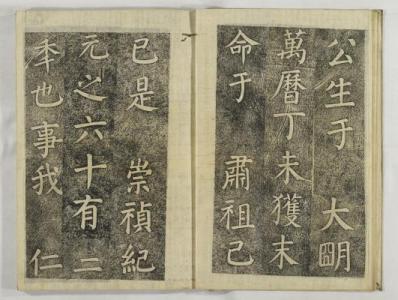 公生于　大朙
萬曆丁未獲末
命于　肅祖己
巳是　崇禎紀
元之六十有二
秊也事我　仁